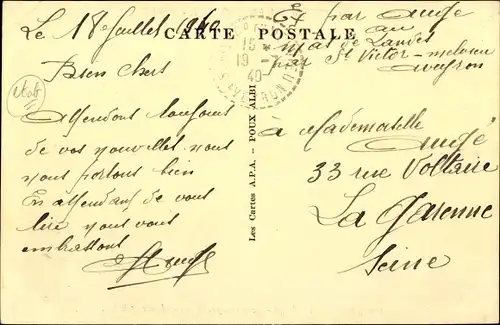 Le 18 Juillet 1940
CARTE POSTALE
Ex par Augé
au
Mas de Landes
par St Victor-melvieu
aveyron
15
19
40
AVEYRON
Bien chers
Attendons toujours
de vos nouvelles nous
nous portons bien
En attendant de vous
lire nous vous
embrassons
Augé
Les Cartes A.P.A. - POUX ALBI
a Mademoiselle
Augé
33 rue Voltaire
La Garenne
Seine